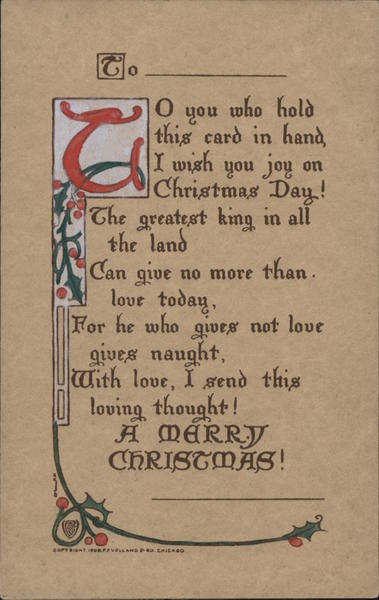 To
TO you who hold
this card in hand,
I wish you joy on
Christmas Day!
The greatest king in all
the land
Can give no more than
love today,
For he who gives not love
gives naught,
With love, I send this
loving thought!
A MERRY
CHRISTMAS!
COPYRIGHT 1908, P.F. VOLLAND & CO. CHICAGO